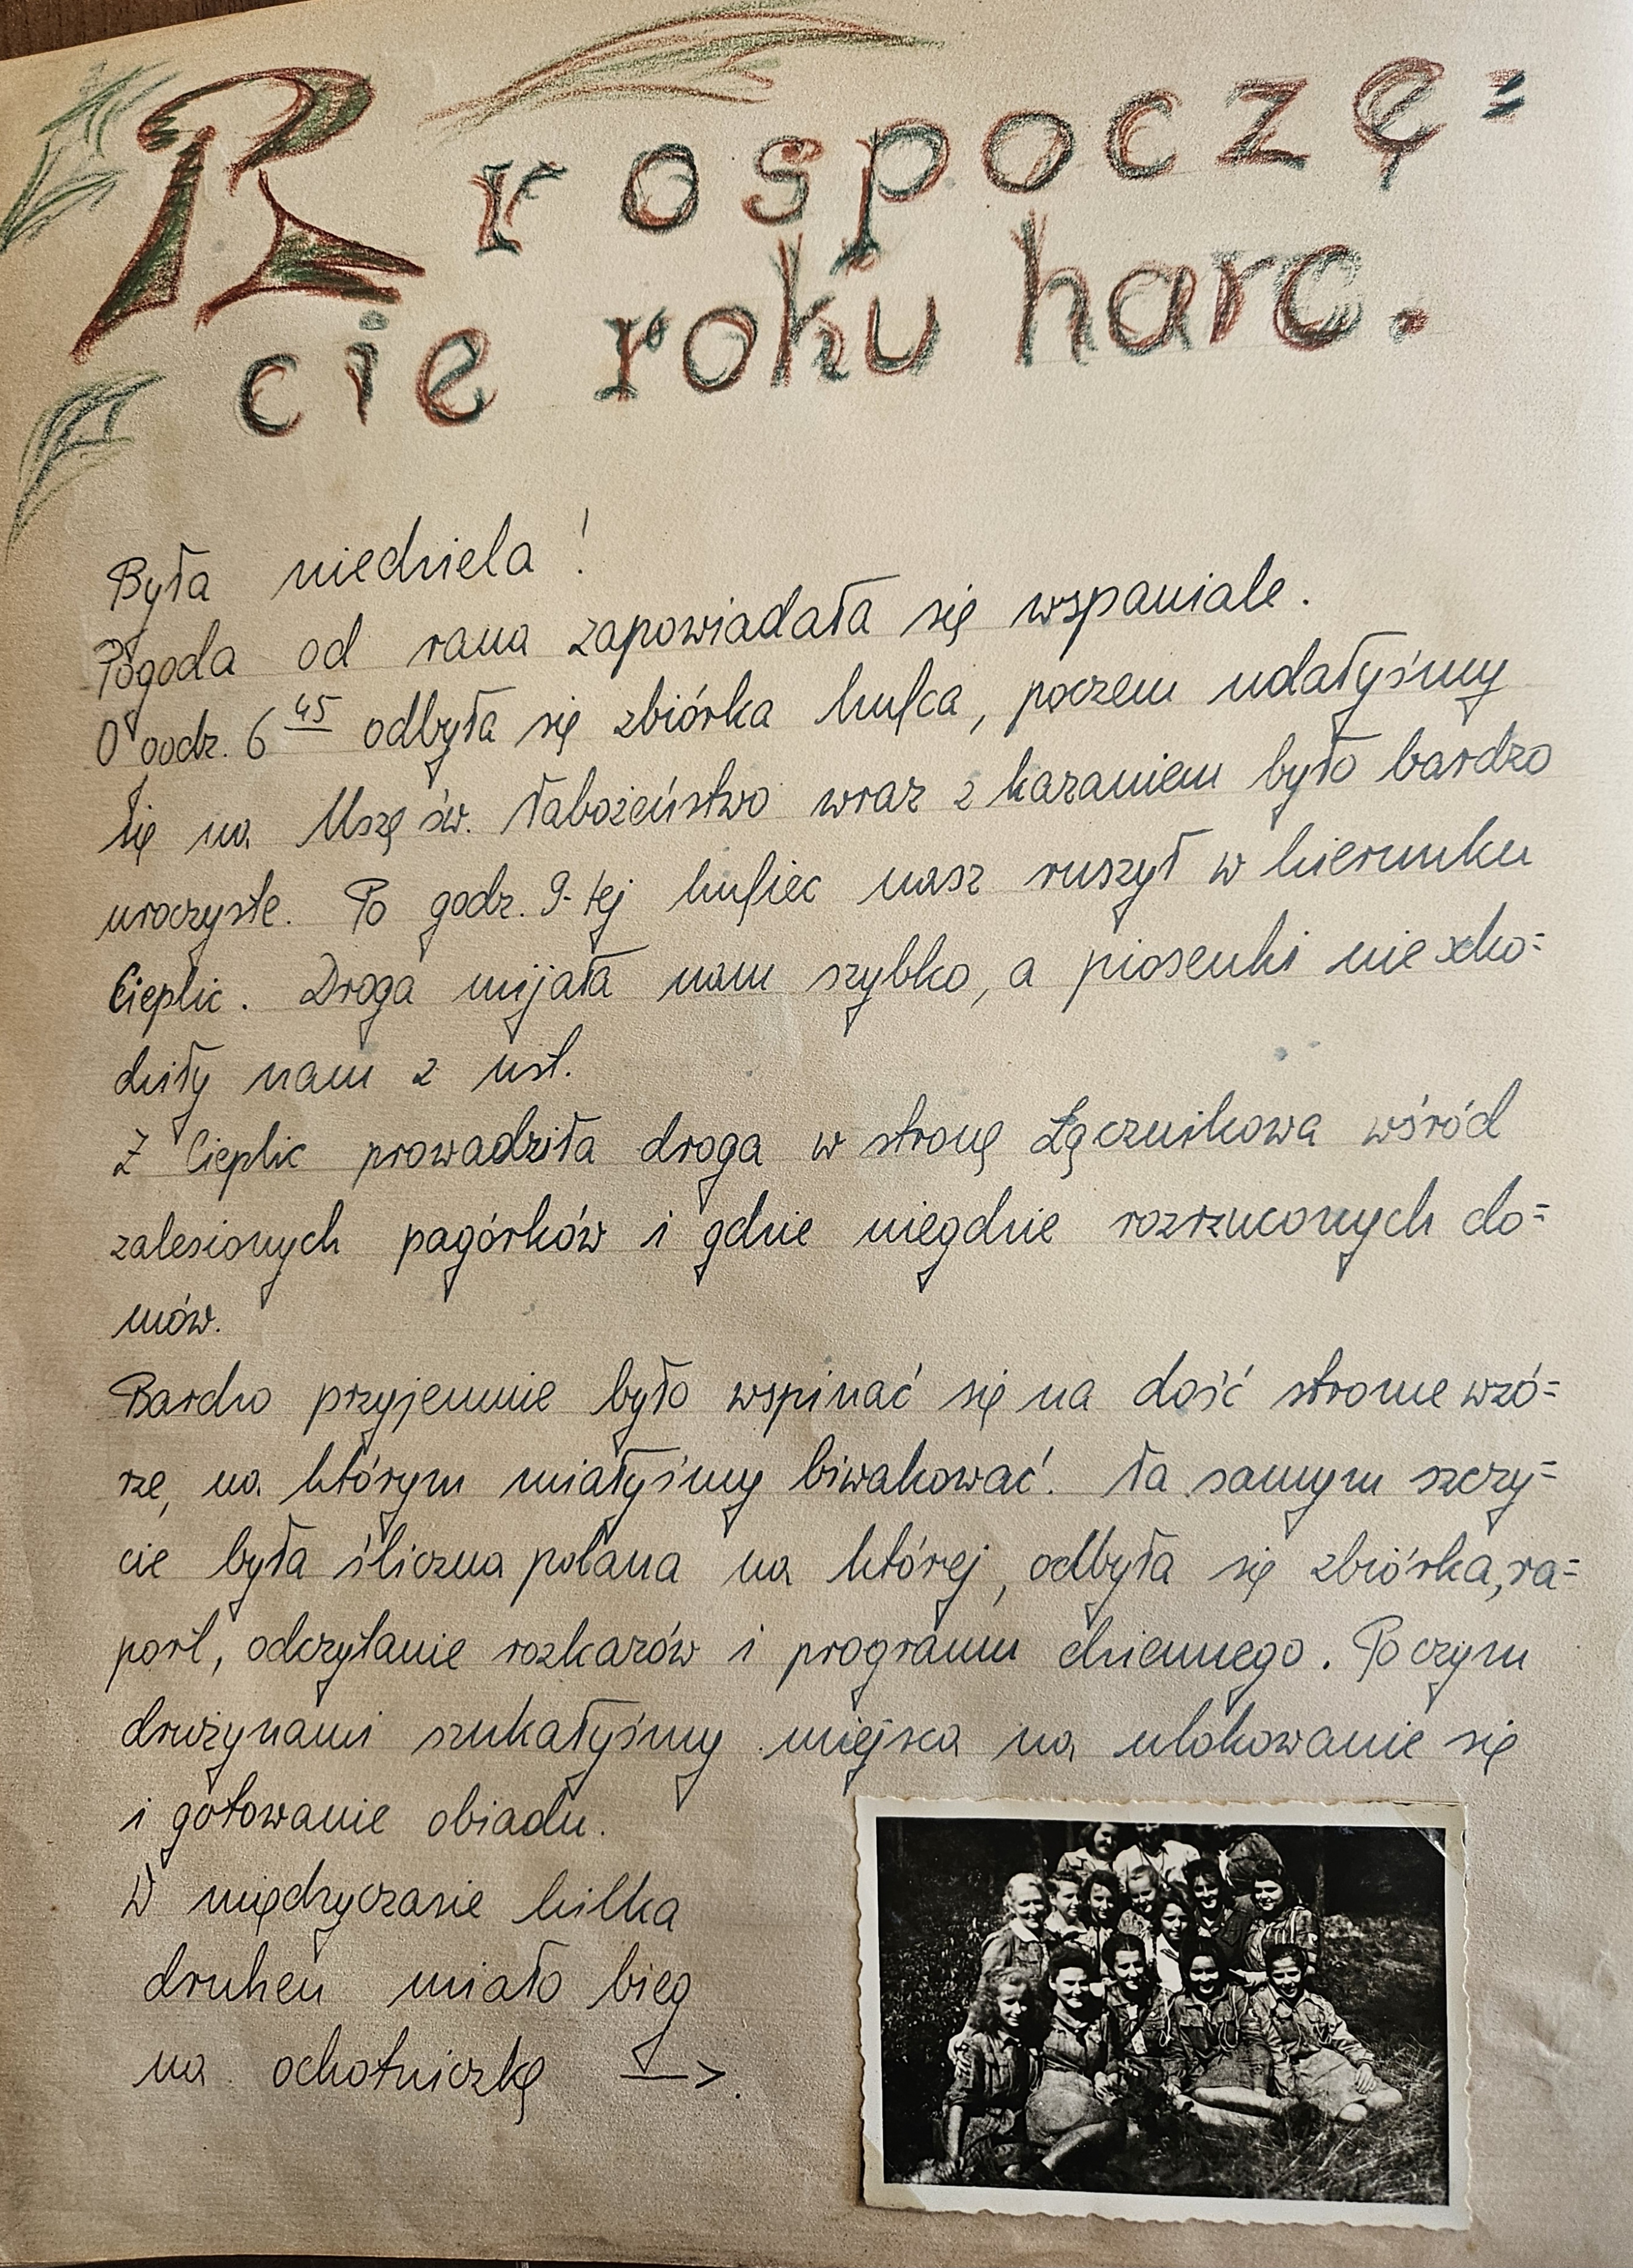 Rrospoczę=
cie roku harc.
Była niedziela!
Pogoda od rana zapowiadała się wspaniale.
O godz. 6 45 odbyła się zbiórka hufca, poczem udałyśmy
się na Mszę św. Nabożeństwo wraz z kazaniem było bardzo
uroczyste. Po godz. 9-tej hufiec nasz ruszył w kierunku
Cieplic. Droga mijała nam szybko, a piosenki nie scho=
dziły nam z ust.
Z Cieplic prowadziła droga w stronę Łącznikowa wśród
zalesionych pagórków i gdzie niegdzie rozrzuconych do=
mów.
Bardzo przyjemnie było wspinać się na dość strome wzó=
rze, na którym miałyśmy biwakować. Na samym szczy=
cie była śliczna polana na której, odbyła się zbiórka, ra=
port, odczytanie rozkazów i programu dziennego. Po czym
drużynami szukałyśmy miejsca na ulokowanie się
i gotowanie obiadu.
W międzyczasie kilka
druhen miało bieg
na ochotniczkę